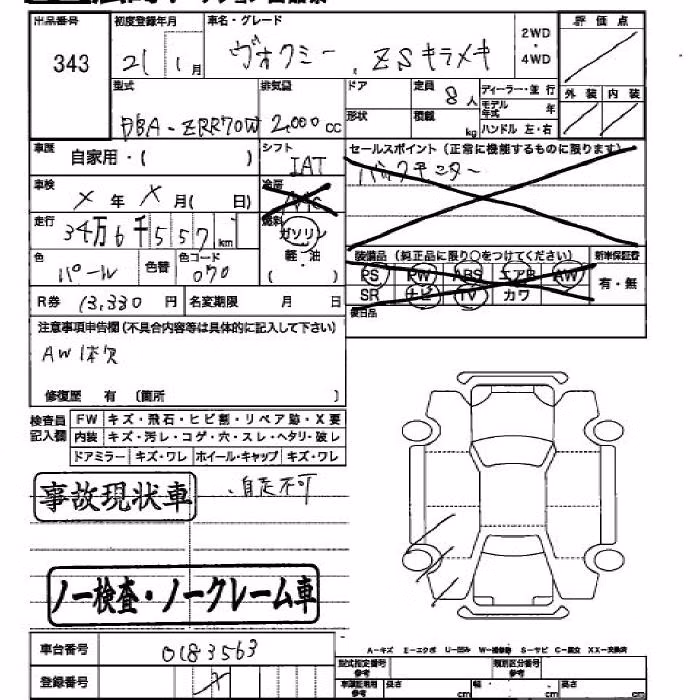 出品番号 初度登録年月 車名・グレード 2WD・4WD 評価点
343 21 1月 ヴォクシー ZSキラメキ
型式 排気量 ドア 定員 8人 ディーラー・並行 外装 内装
モデル年式 年
DBA-ZRR70W 2,000cc 形状 積載 kg ハンドル 左・右
車歴 自家用・( ) シフト IAT セールスポイント(正常に機能するものに限ります)
バックモニター
車検 X年X月( 日) 冷房 A/C
走行 34万6千557 km 燃料 ガソリン
軽・油
( )
色 パール 色替 色コード 070
装備品(純正品に限り○をつけてください) 新車保証書
PS PW ABS エアB AW 有・無
SR ナビ TV カワ
R券 13,330円 名変期限 月 日
復旧品
注意事項申告欄(不具合内容等は具体的に記入して下さい)
AW1本欠
修復歴 有 (箇所 )
検査員記入欄 FW キズ・飛石・ヒビ割・リペア跡・X要
内装 キズ・汚レ・コゲ・穴・スレ・ヘタリ・破レ
ドアミラー キズ・ワレ ホイール・キャップ キズ・ワレ
事故現状車 ・自走不可
ノー検査・ノークレーム車
A-キズ E-エクボ U-凹み W-補修跡 S-サビ C-腐食 XX-交換済
車台番号 0183563
型式指定番号 参考 類別区分番号 参考
登録番号 X
車検証専用 参考 長さ cm 幅 cm 高さ cm